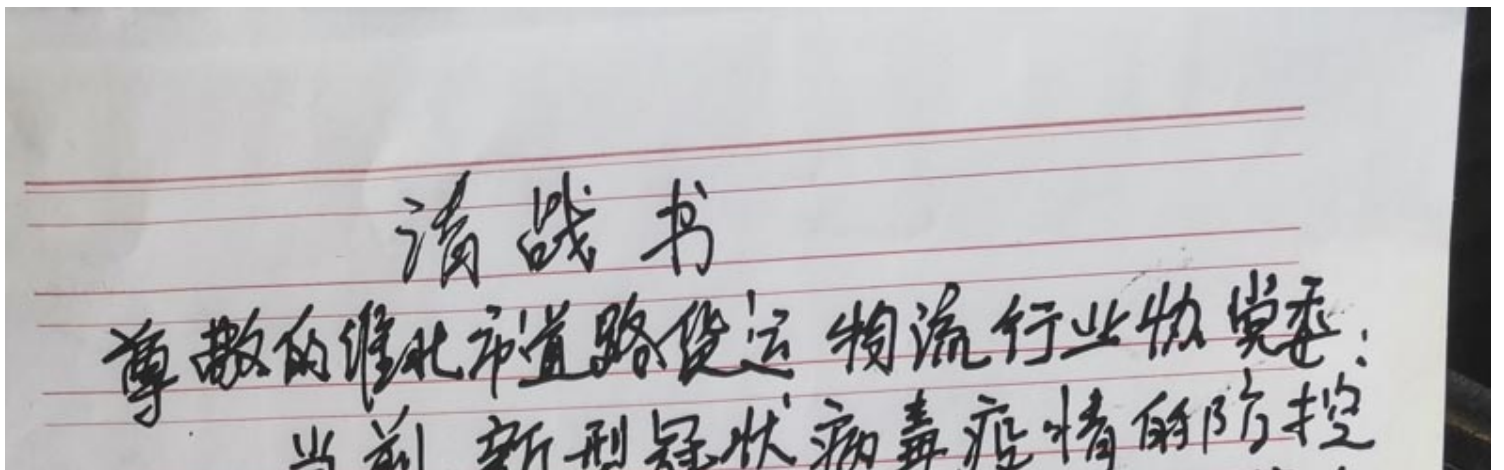 请战书
尊敬的淮北市道路货运物流行业协党委:
当前新型冠状病毒疫情的防控